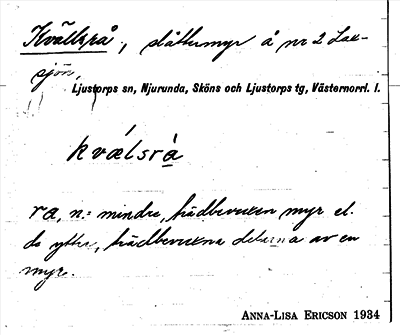 Kvällsrå, slåttermyr å nr 2 Lax-
sjön,
Ljustorps sn, Njurunda, Sköns och Ljustorps tg, Västernorrl. l.
kvǽlsrà
ra, n.: mindre, trädbevuxen myr el.
de yttre, trädbevuxna delarna av en
myr.
ANNA-LISA ERICSON 1934